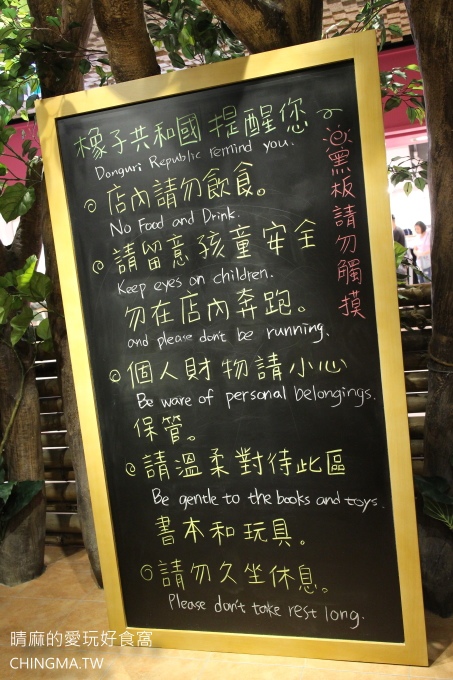 橡子共和國 提醒您~
Donguri Republic remind you.
黑板請勿觸摸
◎店內請勿飲食。
No Food and Drink.
◎請留意孩童安全
Keep eyes on children.
勿在店內奔跑。
and please don't be running.
◎個人財物請小心
Be ware of personal belongings.
保管。
◎請溫柔對待此區
Be gentle to the books and toys.
書本和玩具。
◎請勿久坐休息。
Please don't take rest long.
晴麻的愛玩好食窩
CHINGMA.TW